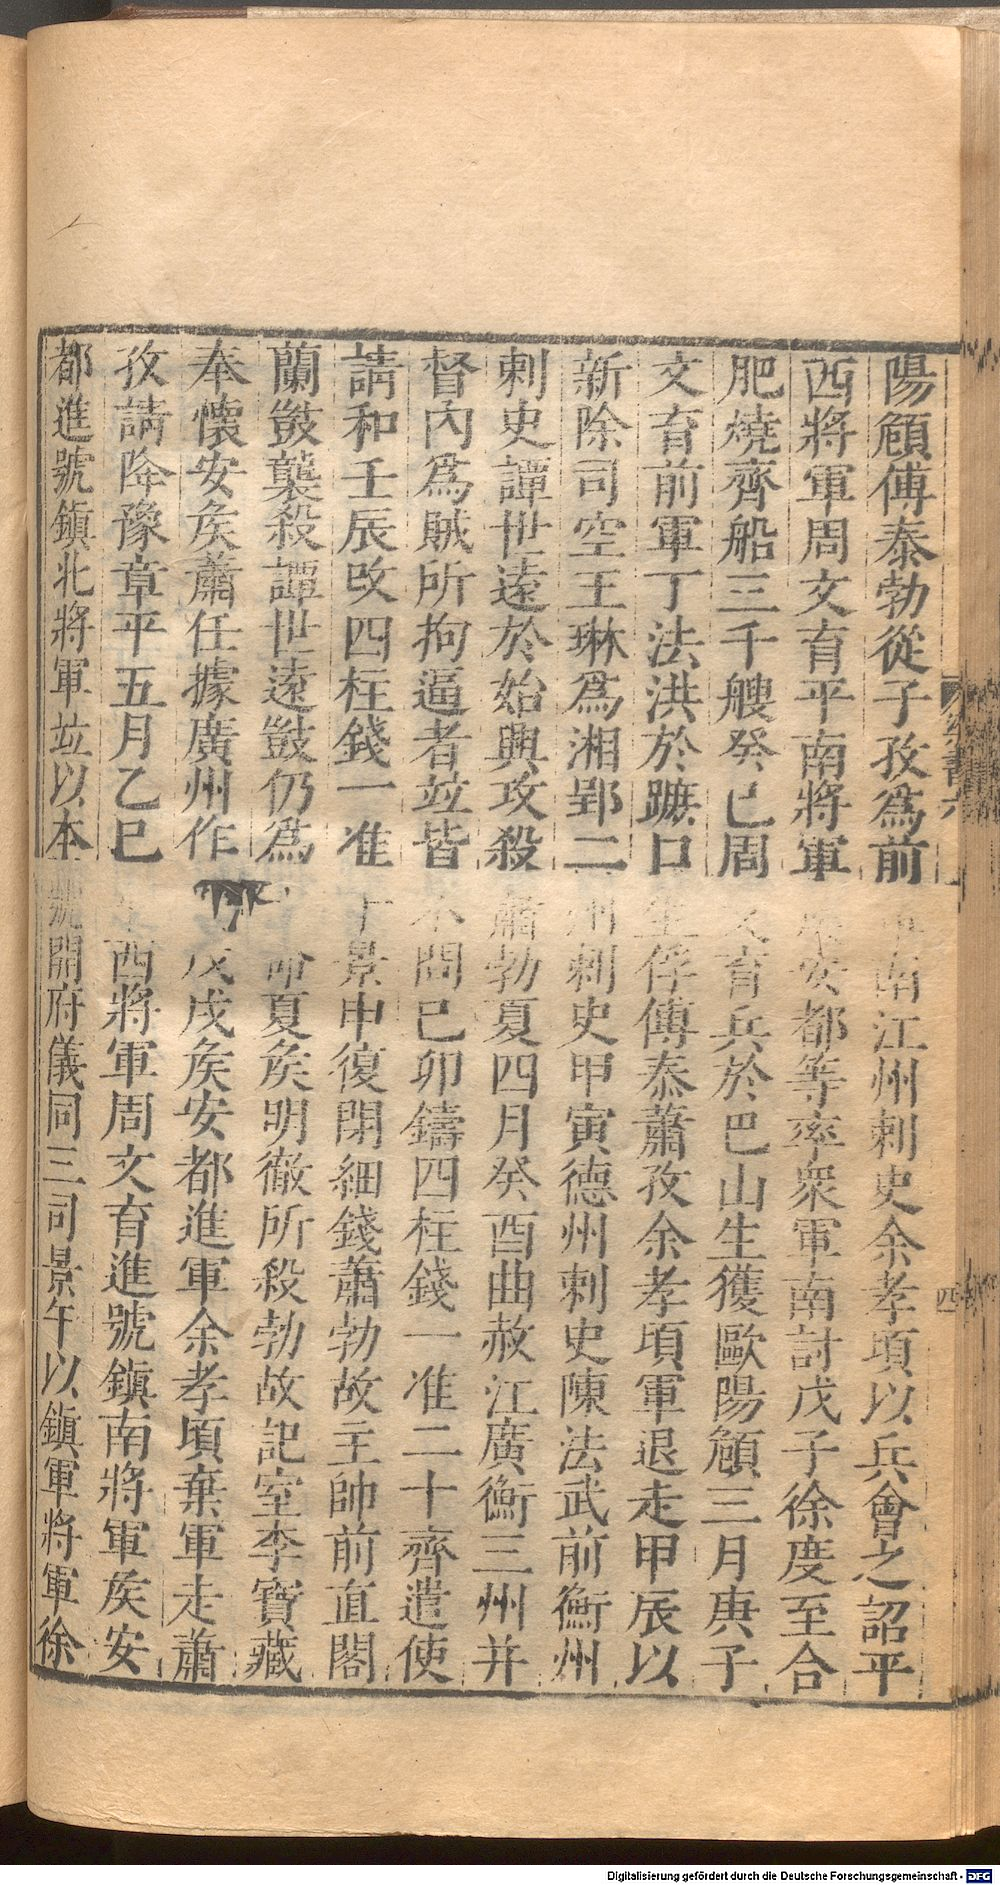 陽頠傅泰勃從子孜爲前南江州刺史余孝頃以兵會之詔平
西將軍周文育平南將軍安都等率衆軍南討戊子徐度至合
肥燒齊船三千艘癸巳周文育兵於巴山生獲歐陽頠三月庚子
文育前軍丁法洪於蹠口生俘傅泰蕭孜余孝頃軍退走甲辰以
新除司空王琳爲湘郢二州刺史甲寅德州刺史陳法武前衡州
刺史譚世遠於始興攻殺蕭勃夏四月癸酉曲赦江廣衡三州并
督內爲賊所拘逼者竝皆不問己卯鑄四柱錢一准二十齊遣使
請和壬辰改四柱錢一准十景申復閉細錢蕭勃故主帥前直閤
蘭敱襲殺譚世遠敱仍爲命夏矦明徹所殺勃故記室李寶藏
奉懷安矦蕭任據廣州作戊戌矦安都進軍余孝頃棄軍走蕭
孜請降豫章平五月乙巳西將軍周文育進號鎮南將軍矦安
都進號鎮北將軍竝以本號開府儀同三司景午以鎮軍將軍徐
梁書六
四
Digitalisierung gefördert durch die Deutsche Forschungsgemeinschaft - DFG